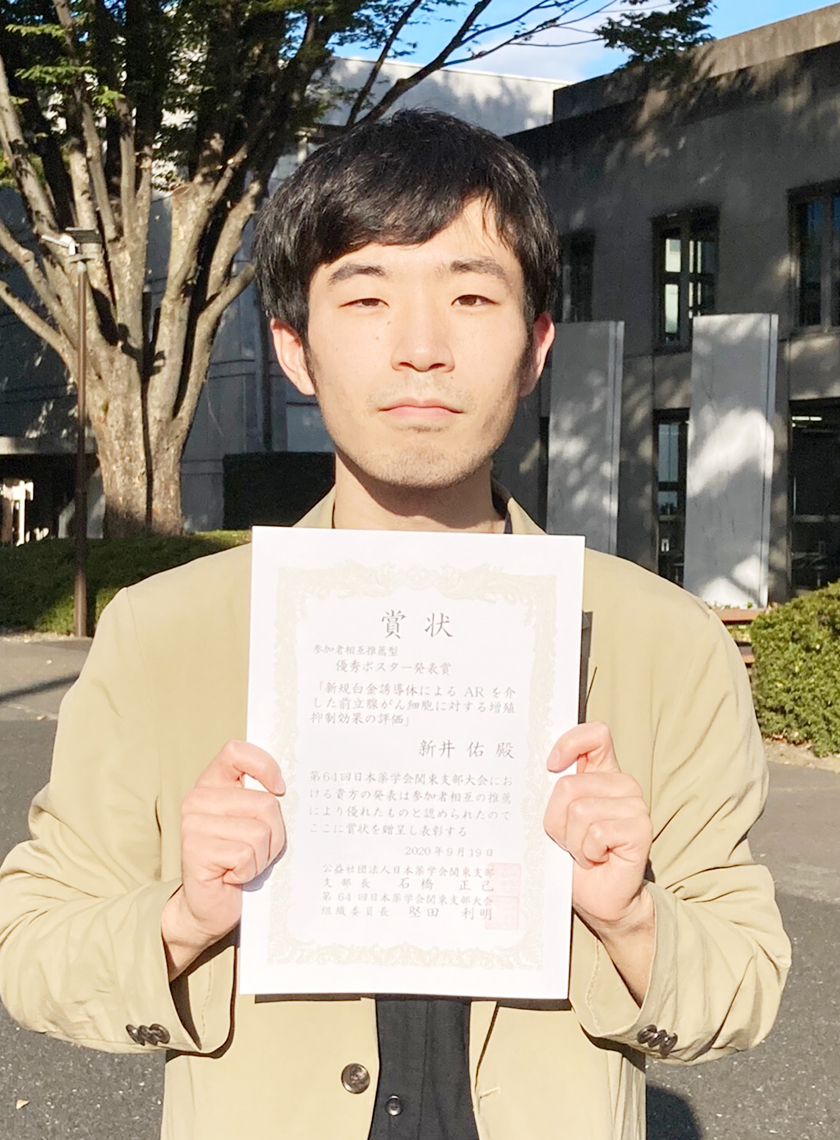 賞状
参加者相互推薦型
優秀ポスター発表賞
「新規白金誘導体による AR を介
した前立腺がん細胞に対する増殖
抑制効果の評価」
新井 佑 殿
第64回日本薬学会関東支部大会にお
ける貴方の発表は参加者相互の推薦
により優れたものと認められたので
ここに賞状を贈呈し表彰する
2020年9月19日
公益社団法人日本薬学会関東支部
支部長 石橋 正己
第64回日本薬学会関東支部大会
組織委員長 堅田 利明